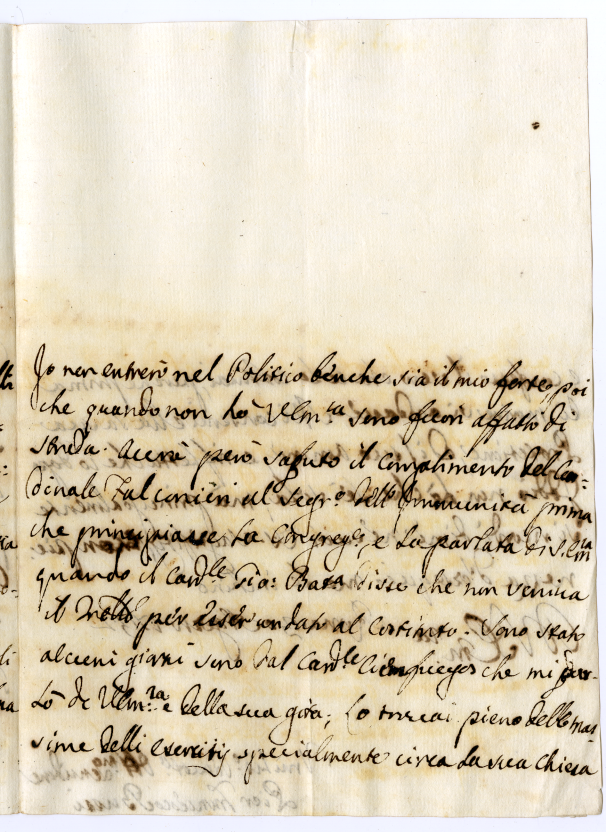 Io non entrerò nel Politico benche sia il mio forte, poi
che quando non hò V.Em.za sono fuori affatto di
strada. Averà però saputo il complimento del Car=
dinale Falconieri al Segr.o dell' Immunità prima
che principiasse la Congreg.e, e la parlata di S.Em.za
quando il Card.le Gio: Batta disse che non veniva
il per esser andato al Corsinto. Sono stato
alcuni giorni sono dal Card.le Cienfuegos che mi par-
lò di V.Em.za e della sua gita; lo trovai pieno delle mas
sime delli esercitij specialmente circa la sua Chiesa